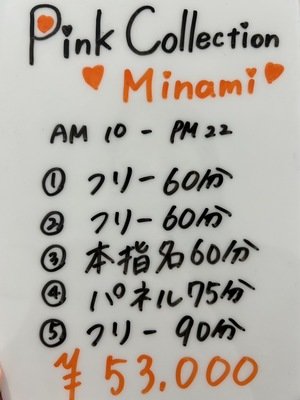 Pink Collection
Minami
AM 10 - PM 22
① フリー 60分
② フリー 60分
③ 本指名 60分
④ パネル 75分
⑤ フリー 90分
¥ 53.000